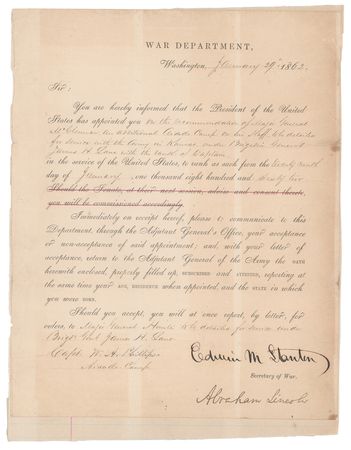 WAR DEPARTMENT,
Washington, January 29th 1862.
Sir:
You are hereby informed that the President of the United
States has appointed you on the recommendation of Major General
McClellan an additional Aide de Camp on his Staff, to be detailed
for service with the army in Kansas, under Brigadier General
James H. Lane with the rank of Captain
in the service of the United States, to rank as such from the twenty ninth
day of January, one thousand eight hundred and sixty two
Should the Senate, at their next session, advise and consent thereto,
you will be commissioned accordingly.
Immediately on receipt hereof, please to communicate to this
Department, through the Adjutant General's Office, your acceptance
or non-acceptance of said appointment; and, with your letter of
acceptance, return to the Adjutant General of the Army the OATH
herewith enclosed, properly filled up, SUBSCRIBED and ATTESTED, reporting at
the same time your AGE, RESIDENCE when appointed, and the STATE in which
you were BORN.
Should you accept, you will at once report, by letter, for
orders, to Major General Hunter to be detailed for service under
Brig. Genl James H. Lane
Capt. W. A. Phillips
Aide de Camp
Edwin M. Stanton
Secretary of War.
Abraham Lincoln